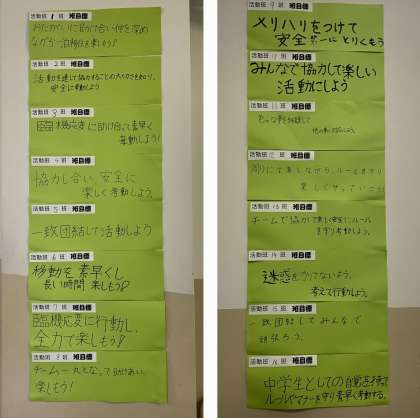 活動班 1 班 班目標
おたがいに助け合い仲を深め
ながら一泊移住を楽しもう!
活動班 2 班 班目標
活動を通して協力することの大切さを知り、
安全に活動しよう
活動班 3 班 班目標
臨機応変に助け合って素早く
行動しよう!
活動班 4 班 班目標
協力し合い安全に
楽しく行動しよう。
活動班 5 班 班目標
一致団結して活動しよう
活動班 6 班 班目標
移動を素早くし
長い時間楽しもう!
活動班 7 班 班目標
臨機応変に行動し、
全力で楽しもう!
活動班 8 班 班目標
チーム一丸となって助けあい、
楽しもう!
活動班 9 班 班目標
メリハリをつけて
安全第一にとりくもう
活動班 10 班 班目標
みんなで協力して楽しい
活動にしよう
活動班 11 班 班目標
活動班 12 班 班目標
周りに注意しながら、ルールを守り
楽しくやっていこう
活動班 13 班 班目標
チームで協力して楽しく安全にルール
を守り行動しよう。
活動班 14 班 班目標
迷惑をかけないよう、
考えて行動しよう。
活動班 15 班 班目標
一致団結してみんなで
頑張ろう。
活動班 16 班 班目標
中学生としての自覚を持って
ルールやマナーを守り素早く行動する。